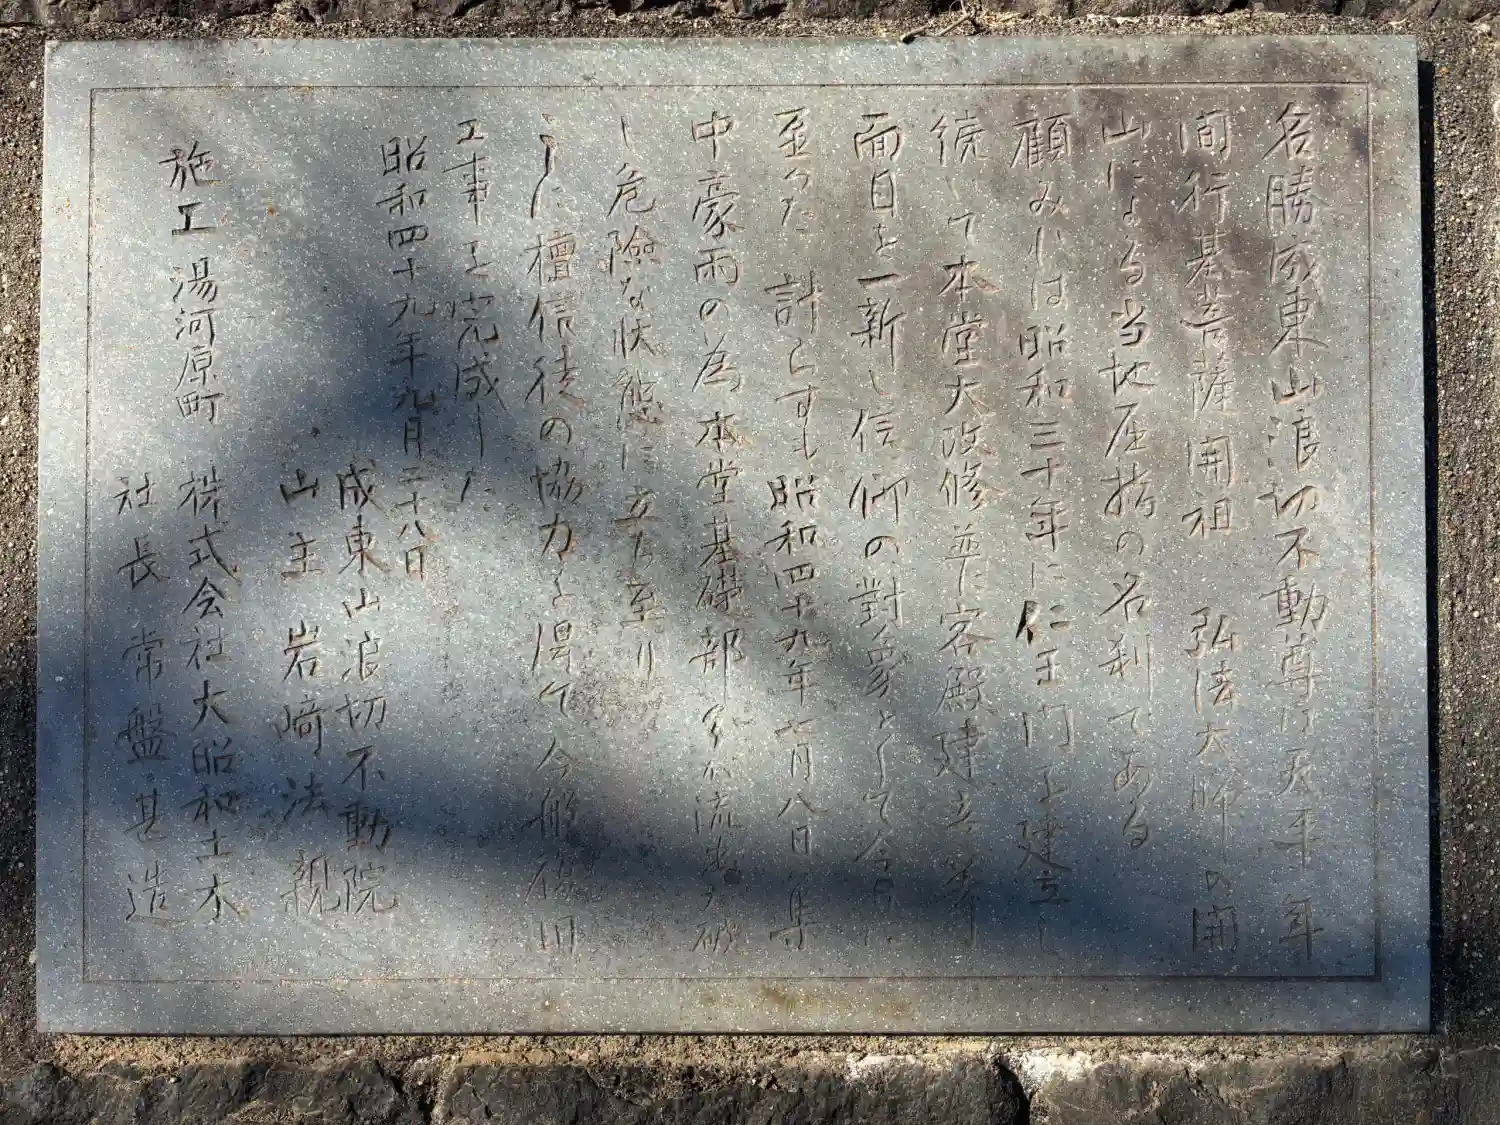 名勝成東山浪切不動尊は天平年
間行基菩薩開祖 弘法大師の開
山による当地屈指の名刹である
顧みれば昭和三十年に仁王門を建立し
続いて本堂大改修並に客殿建立等
面目を一新し信仰の對象として今日に
至った 計らずも昭和四十九年七月八日集
中豪雨の為本堂基礎部分が流出大破
し危険な状態に立ち至り
ここに檀信徒の協力を得て今般復旧
工事を完成した
昭和四十九年九月二十八日
成東山浪切不動院
山主 岩﨑法親
施工 湯河原町 株式会社大昭和土木
社長 常盤甚造